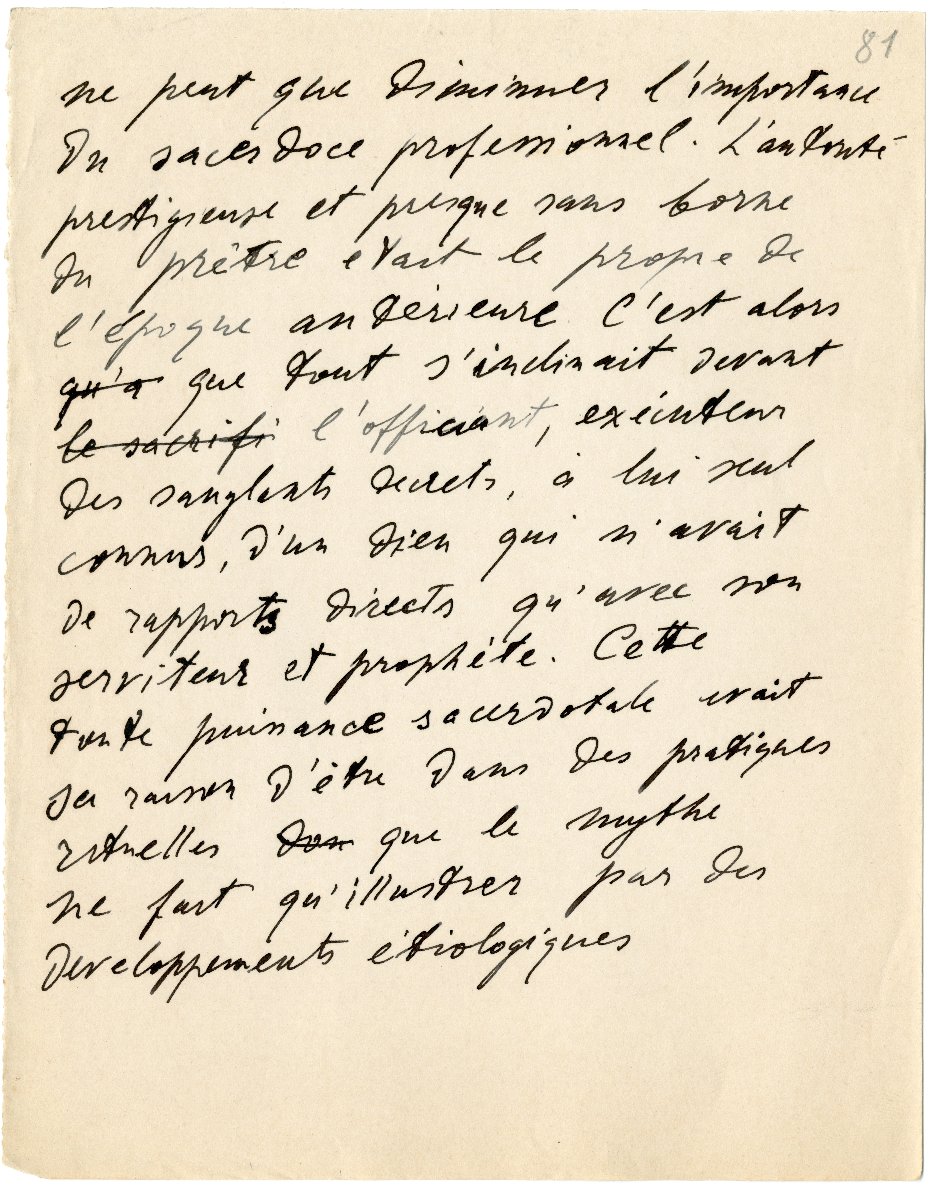 81
ne peut que diminuer l'importance
du sacerdoce professionnel. L'autorité
prestigieuse et presque sans borne
du prêtre était le propre de
l'époque antérieure C'est alors
qu'a que tout s'inclinait devant
le sacrifi l'officiant, exécuteur
des sanglants decrets, à lui seul
connus, d'un dieu qui n'avait
de rapports directs qu'avec son
serviteur et prophète. Cette
toute puissance sacerdotale avait
sa raison d'être dans des pratiques
rituelles don que le mythe
ne fait qu'illustrer par des
developpements étiologiques